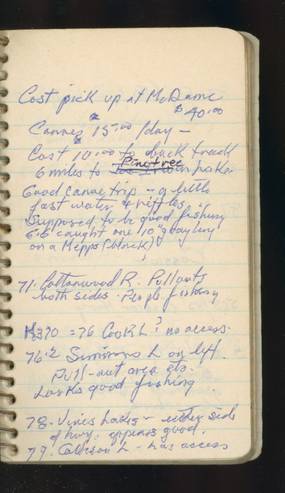 Cost pick up at McDame
$40.00
Canoes 15.00 /day —
Cost 10.00 to truck
6 miles to Pinetree
Good canoe trip - a little
fast water & riffles.
Supposed to be good fishing
caught one 10" grayling
on a Mepps (black)
71. Cottonwood R. Pullouts
both sides. People fishing
= 76 Cook L? no access.
76.2 Simmons L on left.
Pull-out area etc.
Looks good fishing
78. Vines Lakes - either side
of hwy. appears good.
79. L - has access